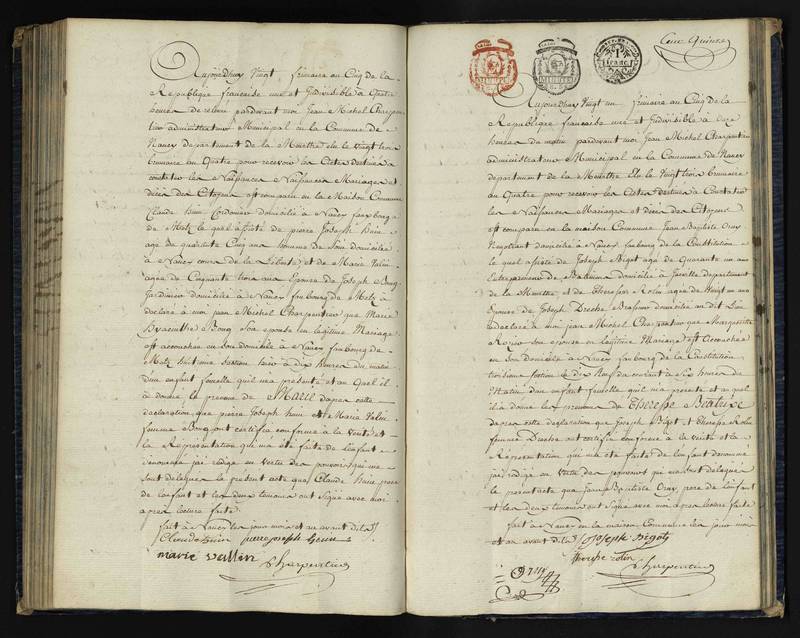 Aujourdhuy Vingt frimaire au Cinq de la
Republique francaise une et Indivisible a Quatre
heures de relevé pardevant moi Jean Michel Charpen
tier administrateur Municipal en la Commune de
Nancy departement de la Meurthe elu le vingt trois
brumaire an Quatre pour recevoir les actes destinés a
constater les Naissances Mariages et
décès des Citoyens est comparu en la Maison Commune
Claude huin Cordonnier domicilié a Nancy faubourg
de Metz le quel assisté de pierre Joseph huin
agé de quarante Cinq ans de Son domicile
a Nancy cour de la Liberté et de Marie Valin
agée de Cinquante trois ans Epouse de Joseph Bourg
Jardinier domicilié a Nancy faubourg de Metz a
déclaré a moi Jean Michel Charpentier que Marie
hyacinthe Bourg Son épouse en légitime Mariage
est accouchée en Son domicile a Nancy faubourg de
Metz huitieme Section hier a dix heures du matin
d'un enfant femelle qu'il m'a présenté et au Quel il
a donné le prenom de MARIE dapres cette
declaration que pierre Joseph huin et Marie Valin
femme Bourg ont certifié conforme a la Verité et
la Représentation qui m'a été faite de l'enfant
dénommé j'ai redigé en vertu des pouvoirs qui me
Sont delegués le présent acte que Claude huin pere
de l'enfant et les deux témoins ont Signé avec moi
apres lecture faite
fait a Nancy les jour mois et an avant dits
Claude huin pierre joseph heuin
marie vallin
Charpentier
1
franc
Cent Quinze
Aujourdhuy Vingt un frimaire au Cinq de la
Republique francaise une et Indivisible a Onze
heures du matin pardevant moi Jean Michel Charpentier
administrateur Municipal en la Commune de Nancy
departement de la Meurthe Elu le Vingt trois brumaire
an Quatre pour recevoir les Actes destinés a Constater
les Naissances Mariages et décès des Citoyens
est comparu en la maison Commune Jean Baptiste
Negotiant domicilié a Nancy faubourg de la Constitution
le quel assisté de Joseph Bigot agé de Quarante un ans
Entrepreneur de Batimens domicilié a departement
de la Meurthe et de Therese Rolin agée de Vingt un ans
Epouse de Joseph Brasseur domicilié au dit lieu
a déclaré a moi jean Michel Charpentier que Marguerite
son epouse en légitime Mariage est Accouchée
en Son domicile a Nancy faubourg de la Constitution
troisieme Section le dix Neuf du courant a Six heures de
Matin d'un enfant femelle qu'il m'a presenté et au quel
il a donné les prenoms de Therese Beatrice
dapres cette declaration que Joseph Bigot et Therese Rolin
femme ont certifié conforme a la verité et la
Representation qui m'a été faite de l'enfant denommé
j'ai redigé en Vertu des pouvoirs qui me sont delegués
le present acte que Jean Baptiste pere de l'enfant
et les deux témoins ont Signé avec moi apres lecture faite
fait a Nancy en la maison Commune les jour mois
et an avant dits Joseph Bigot
therese rolin
Charpentier